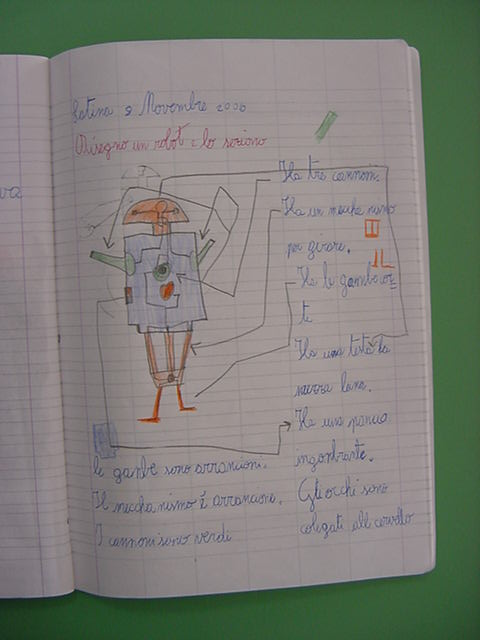 Latina 9 Novembre 2006
Disegno un robot e lo seziono
Ha tre cannoni.
Ha un mecha nismo
per girare.
Ha le gambe cor
te
Ha una testa a
mezza luna.
Ha una pancia
ingombrante.
Gli occhi sono
colegati all cervello
le gambe sono arrancioni.
Il mechanismo è arrancione.
I cannoni sono verdi